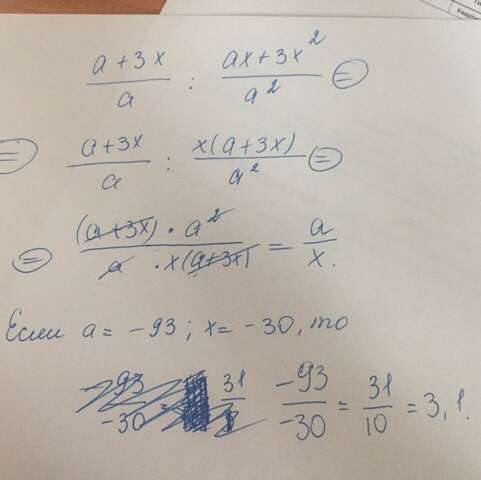 (a + 3x)/a : (ax + 3x²)/a² =
= (a + 3x)/a : x(a + 3x)/a² =
= (a + 3x) · a² / a · x(a + 3x) = a/x.
Если a = -93; x = -30, то
-93/-30 = 31/ -93/-30 = 31/10 = 3,1.